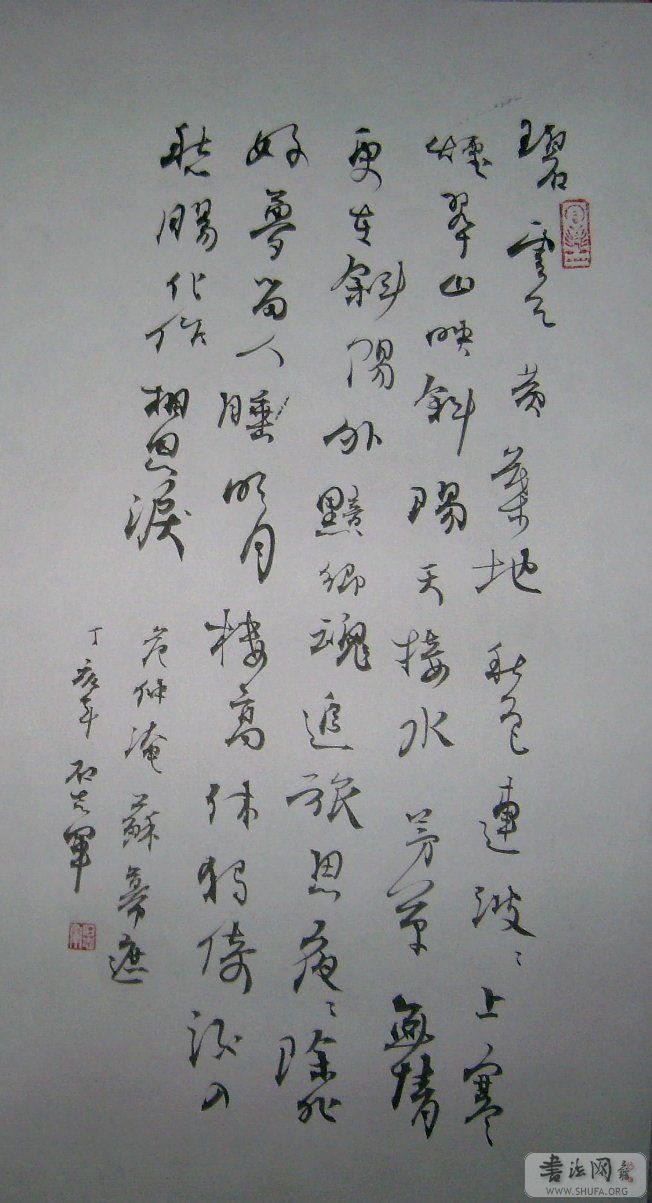 碧雲天黄葉地秋色連波〻上寒
煙翠山映斜陽天接水芳草無情
更在斜陽外黯鄉魂追旅思夜〻除非
好夢留人睡明月樓高休獨倚酒入
愁腸化作相思淚
范仲淹蘇幕遮
丁亥年石軍
書法网
WWW.SHUFA.ORG